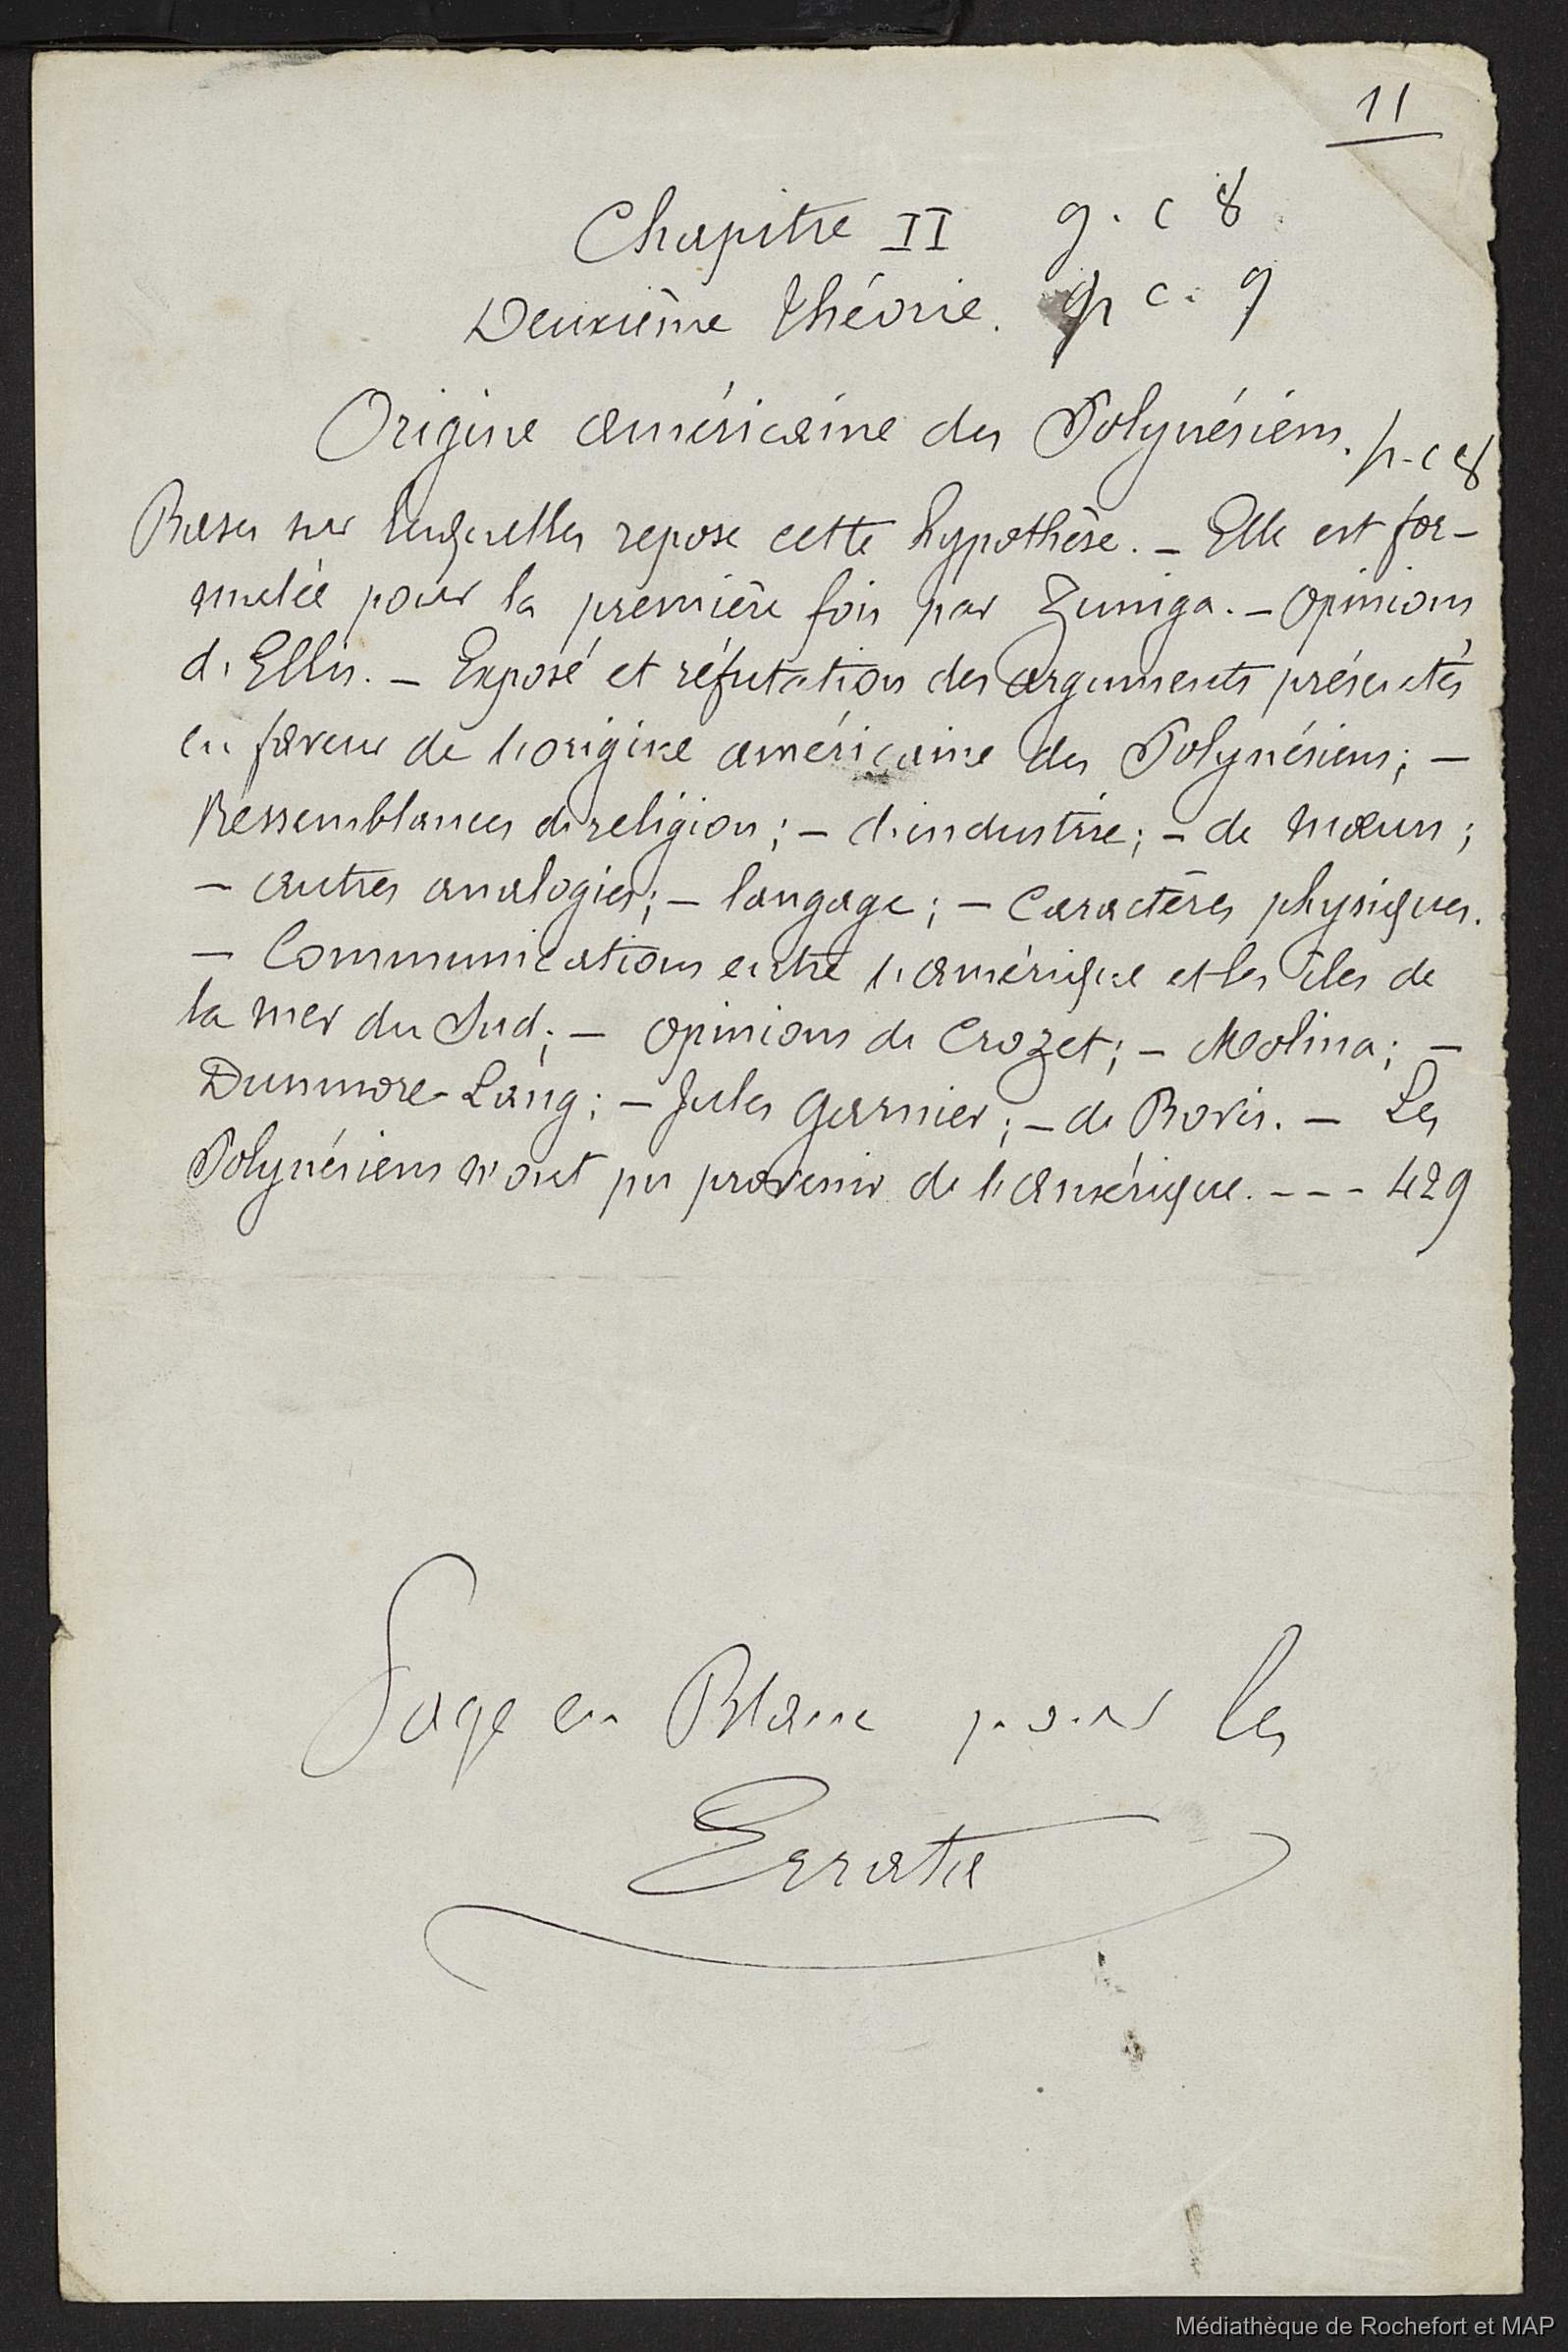 11
Chapitre II g. c 8
Deuxième théorie. p c. 9
Origine américaine des Polynésiens. p. c 8
Bases sur lesquelles repose cette hypothèse. — Elle est for-
mulée pour la première fois par Zuniga. — Opinions
d'Ellis. — Exposé et réfutation des arguments présentés
en faveur de l'origine américaine des Polynésiens; —
Ressemblances de religion; — d'industrie; — de mœurs;
— autres analogies; — langage; — Caractères physiques.
— Communications entre l'amérique et les îles de
la mer du Sud; — Opinions de Crozet; — Molina; —
Dunmore-Lang; — Jules Garnier; — de Bovis. — Les
Polynésiens n'ont pu provenir de l'amérique. - - - 429
Page en Blanc pour les
Errata
Médiathèque de Rochefort et MAP